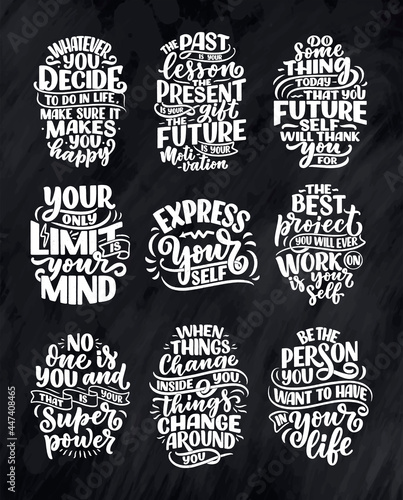 WHATEVER
YOU
DECIDE
TO DO IN LIFE,
MAKE SURE IT
MAKES
YOU
happy
THE PAST
IS YOUR
lesson
THE
PRESENT
IS YOUR
gift
THE
FUTURE
IS YOUR
Moti
vation
DO
Some
THING
TODAY
THAT YOU
FUTURE
SELF
WILL THANK
YOU
FOR
YOUR
ONLY
LIMIT IS
your
MIND
EXPRESS
Your
SELF
THE
BEST
project
YOU WILL EVER
WORK ON
is your
Self
NO
one is
YOU and
THAT IS YOUR
Super
power
WHEN
THINGS
Change
INSIDE YOU,
things
CHANGE
AROUND
YOU
BE THE
PERSON
YOU
WANT TO HAVE
IN
Your
life
Adobe Stock | #447408465